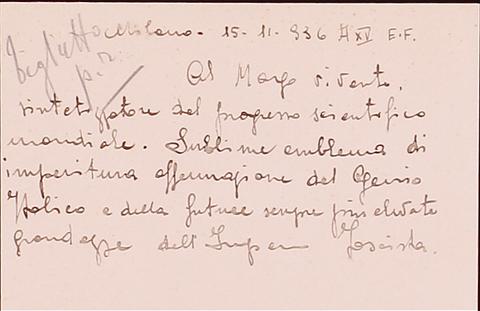 Biglietto
p. r.
Milano - 15 - 11. 936 A XV E.F.
Al Mago vivente,
sintetizzatore del progresso scientifico
mondiale. Sublime emblema di
imperitura affermazione del Genio
Italico e della future sempre più elevate
grandezze dell'Impero Fascista.